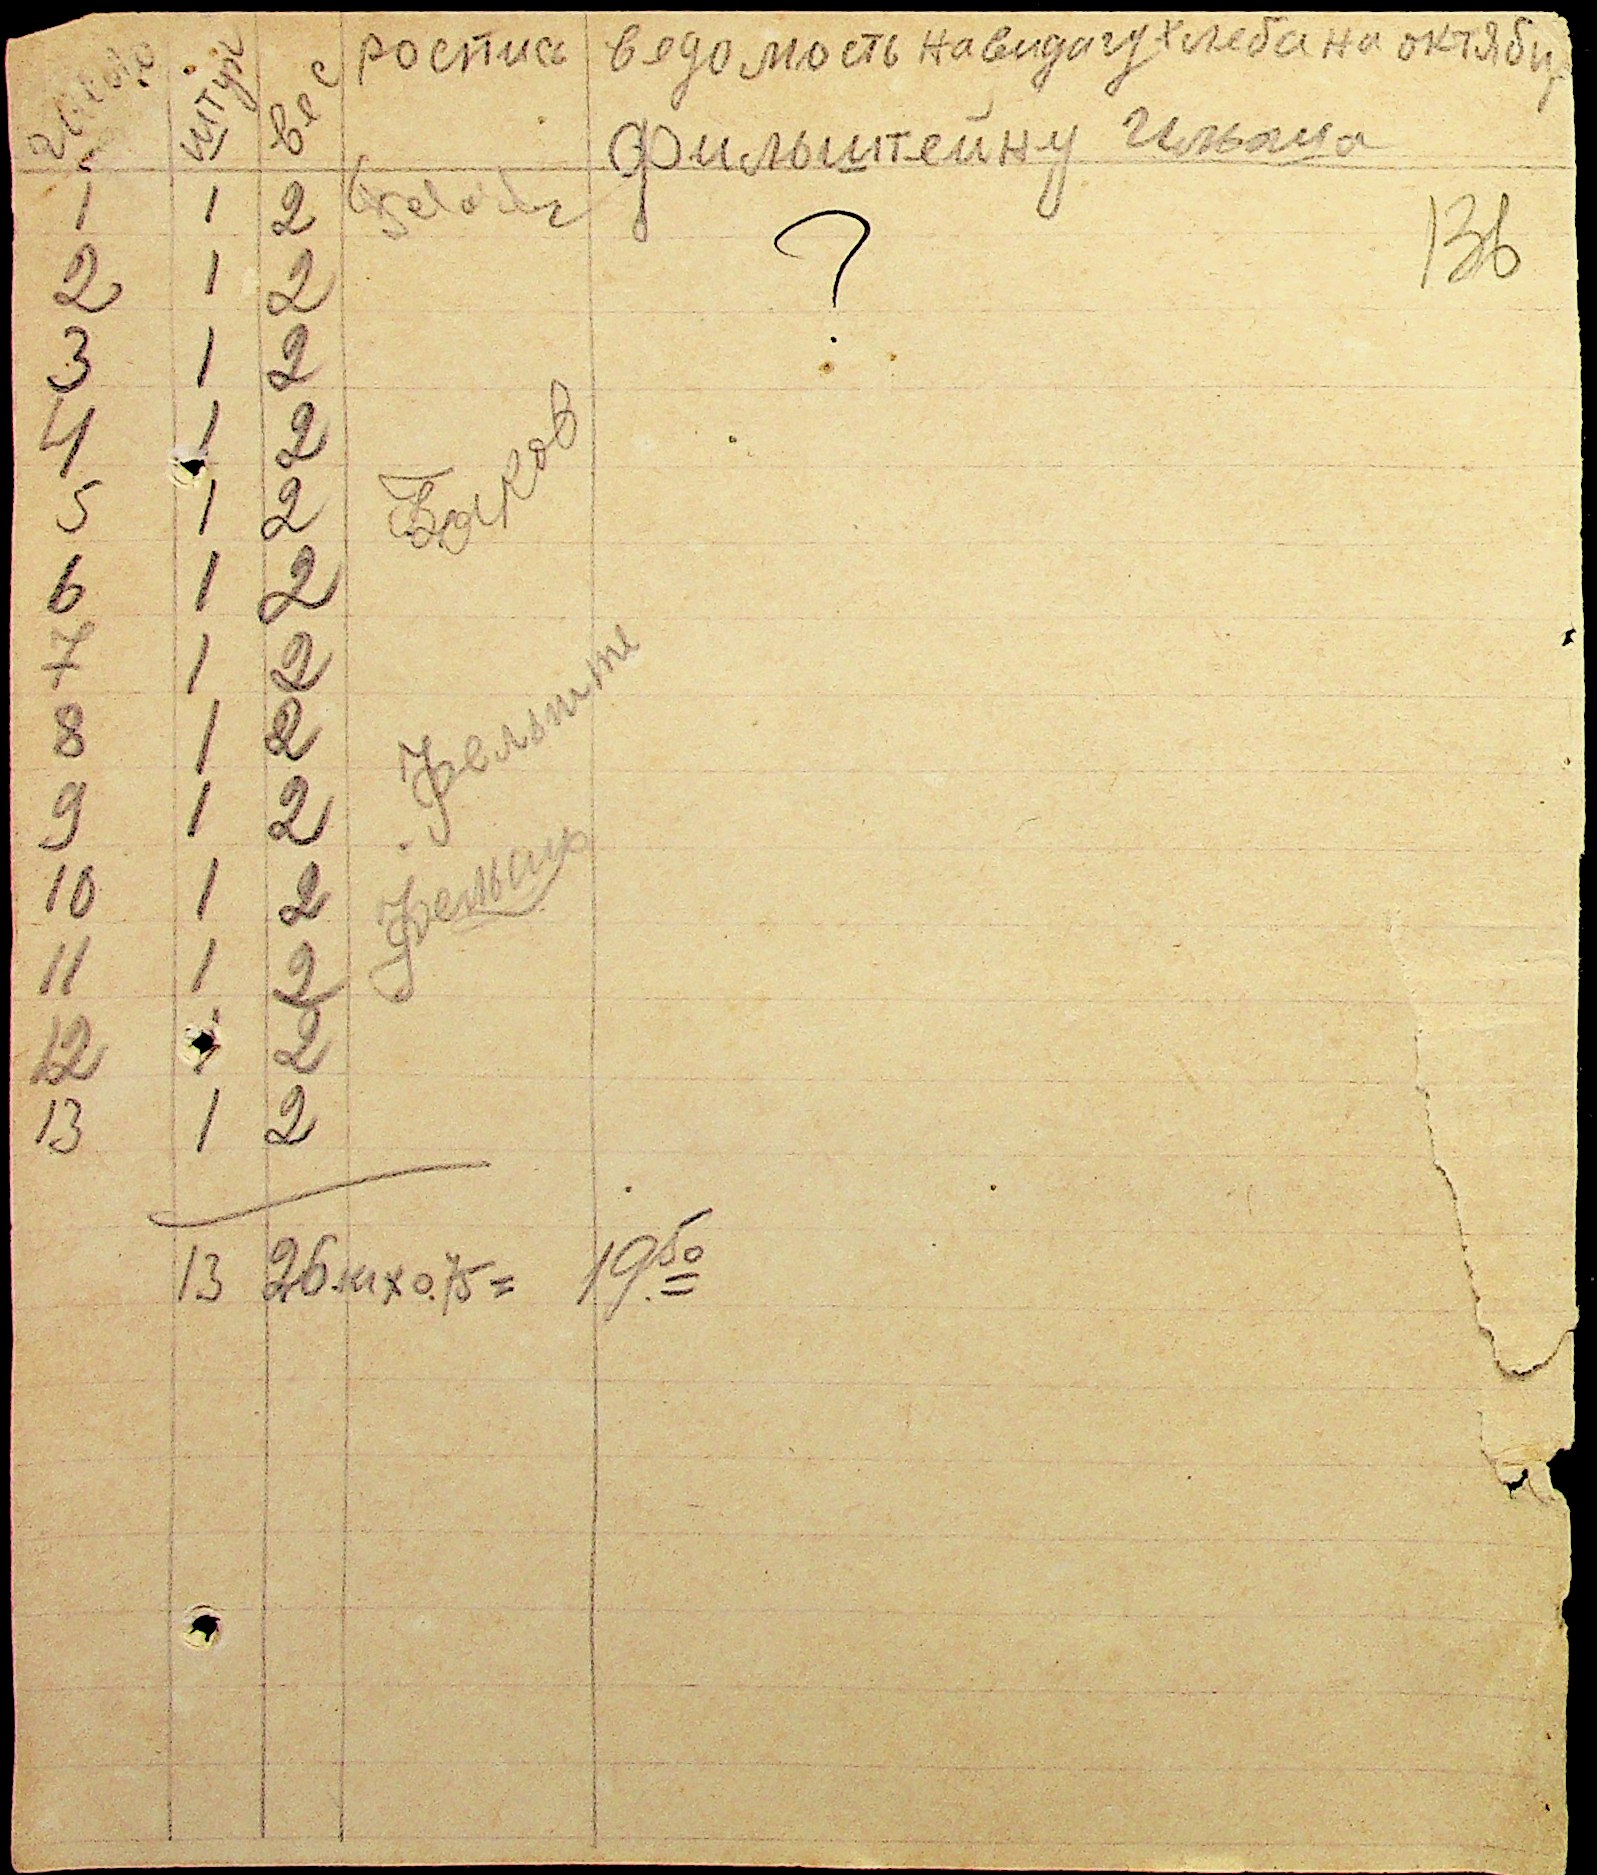 число штук вес роспис ведомость на видачу хлеба на октябр
Фильштейну Ильяша
136
1 1 2
?
2 1 2
3 1 2
4 1 2
5 1 2 Быков
6 1 2
7 1 2
8 1 2 Фельште
9 1 2
10 1 2
11 1 2
12 1 2
13 1 2
13 26 кг х 0.75 = 19.50